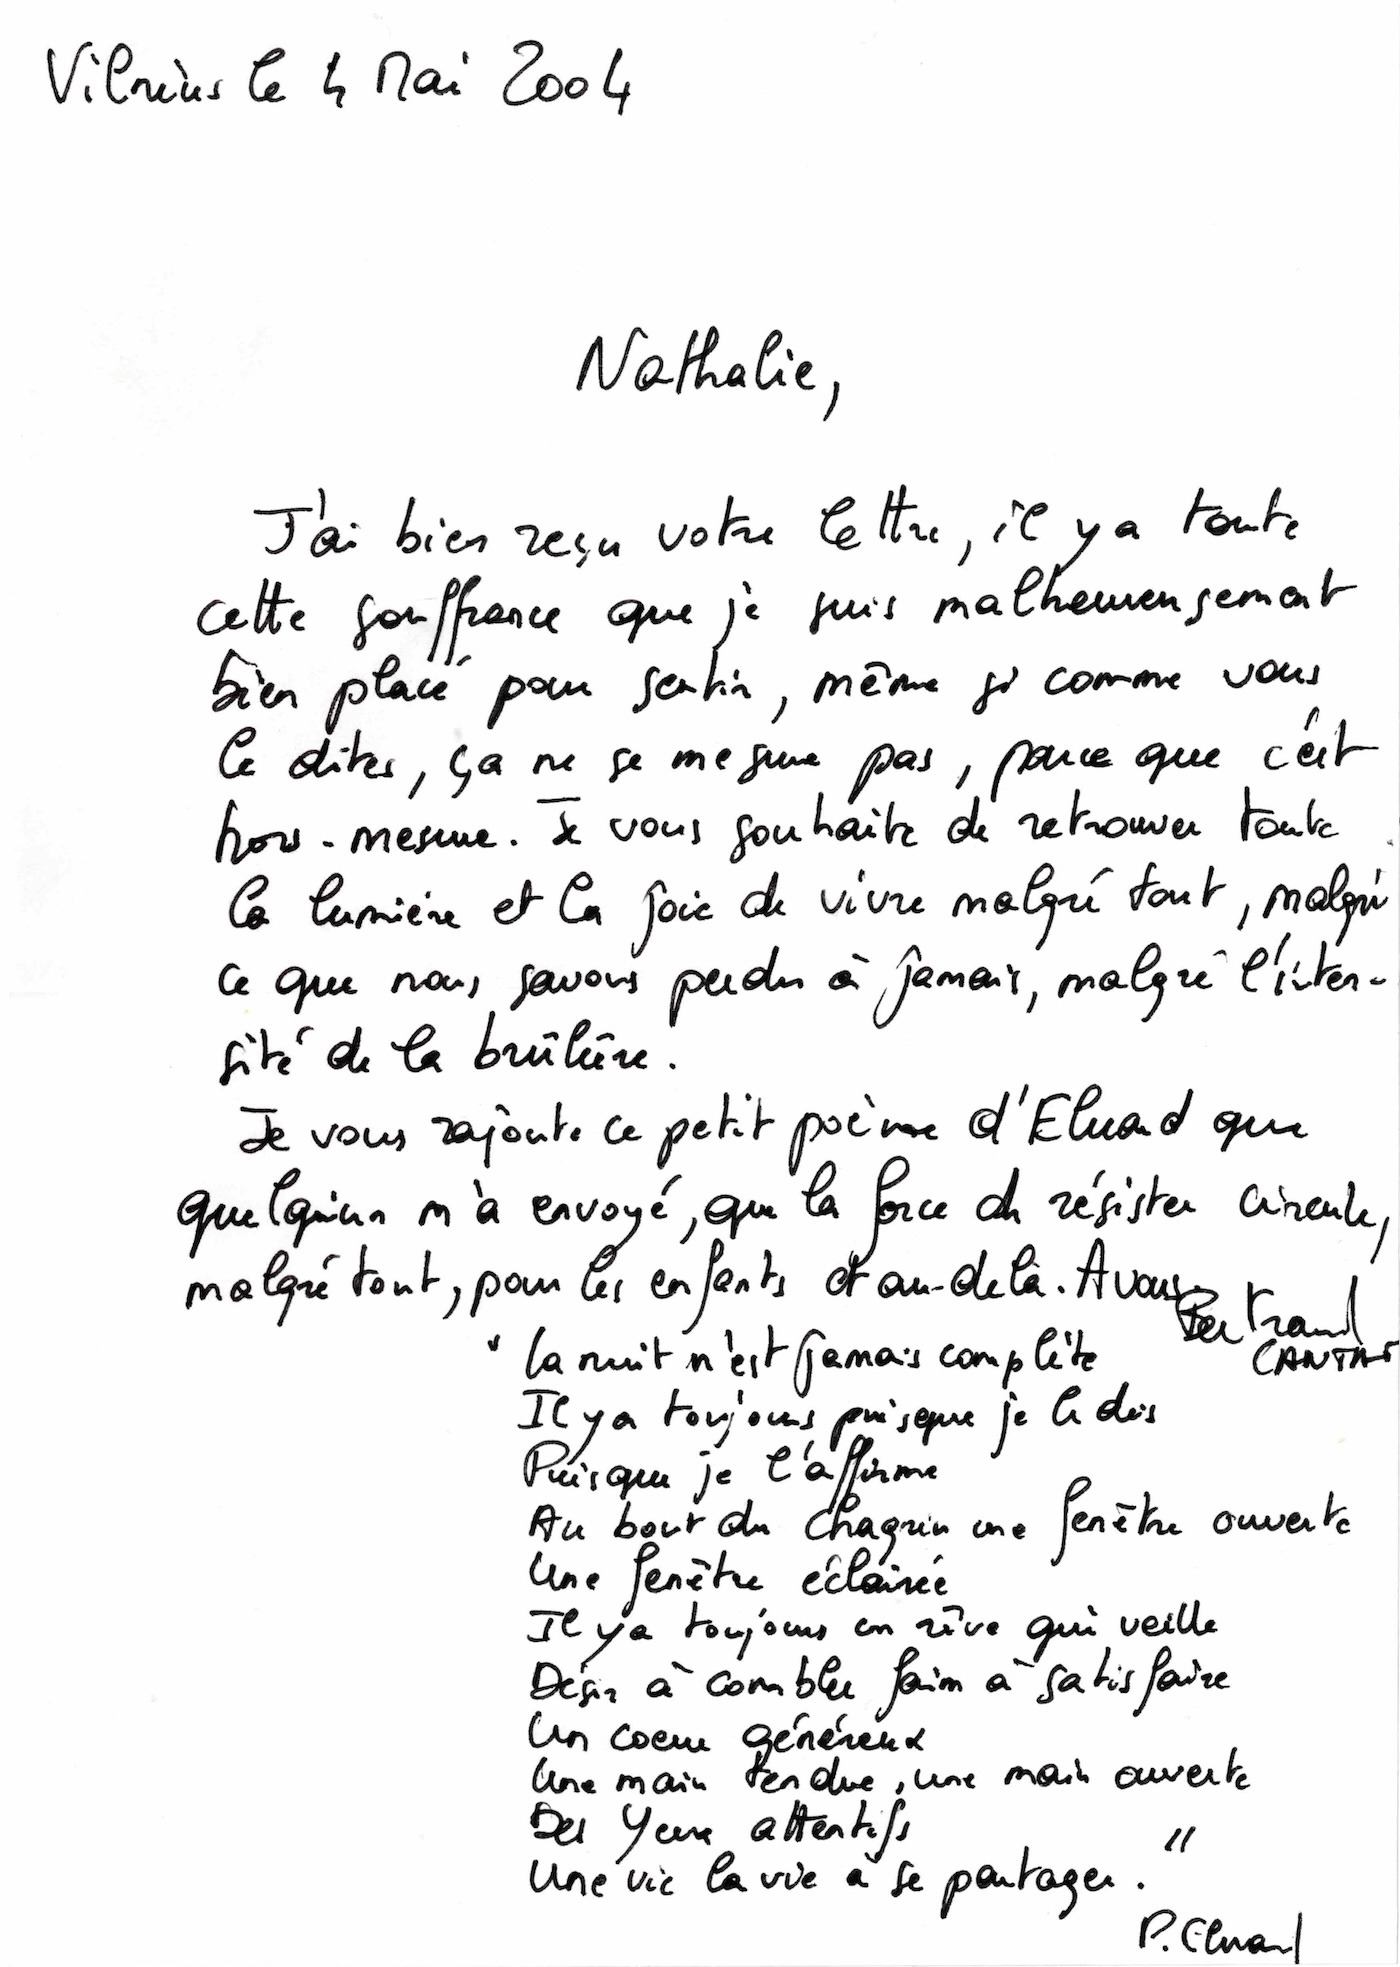 Vilnius le 4 Mai 2004
Nathalie,
J'ai bien reçu votre lettre, il y a toute
cette souffrance que je suis malheureusement
bien placé pour sentir, même si comme vous
le dites, ça ne se mesure pas, parce que c'est
hors-mesure. Je vous souhaite de retrouver toute
la lumière et la joie de vivre malgré tout, malgré
ce que nous savons perdu à jamais, malgré l'inten-
sité de la brûlûre.
Je vous rajoute ce petit poème d'Eluard que
quelqu'un m'a envoyé, que la force de résister circule,
malgré tout, pour les enfants et au-delà. A vous
Bertrand
CANTAT
"La nuit n'est jamais complète
Il y a toujours puisque je le dis
Puisque je l'affirme
Au bout du chagrin une fenêtre ouverte
Une fenêtre éclairée
Il y a toujours un rêve qui veille
Désir à combler faim à satisfaire
Un coeur généreux
Une main tendue, une main ouverte
Des Yeux attentifs
Une vie la vie à se partager."
P. Eluard